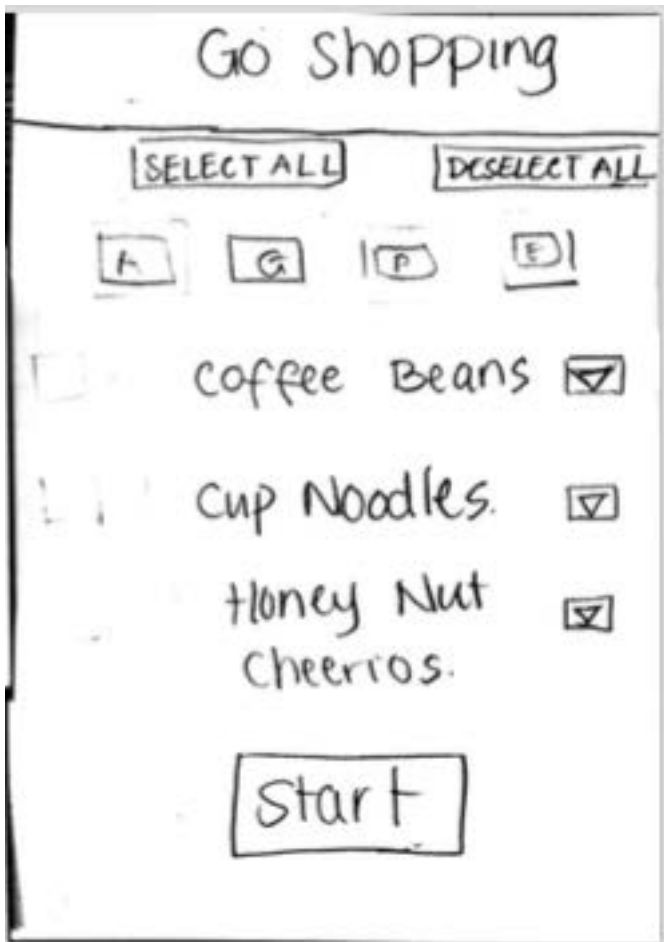 Go Shopping
SELECT ALL DESELECT ALL
A G P F
Coffee Beans
Cup Noodles.
Honey Nut
Cheerios.
Start